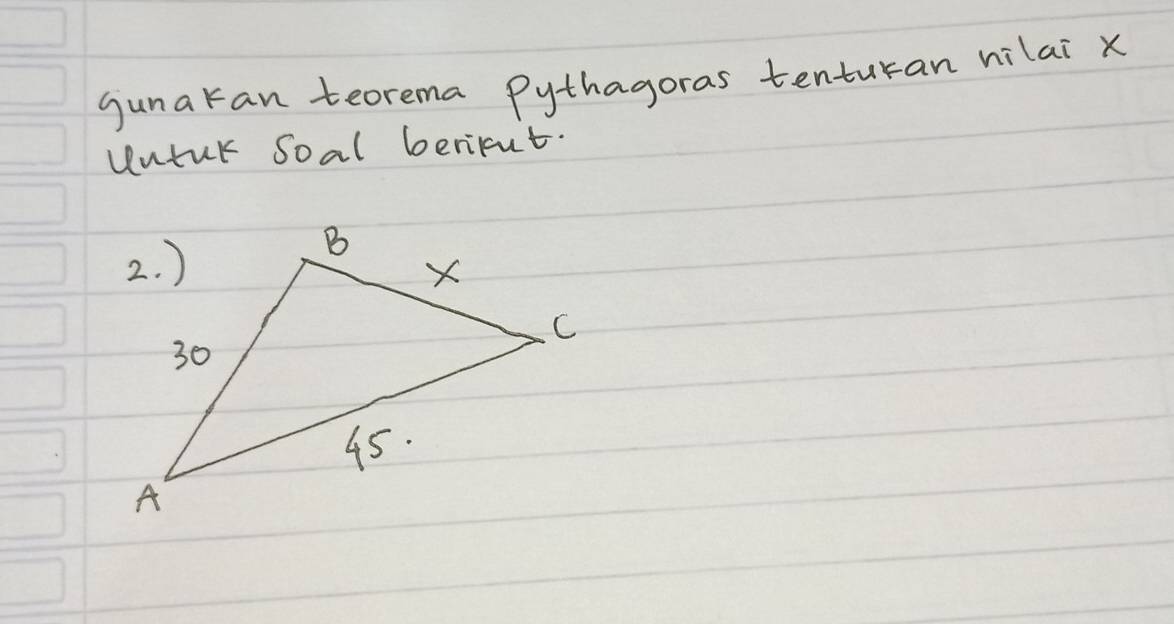 gunakan teorema pythagoras tentukan nilai x
Untuk soal berikut.
2.)
B
x
30
C
45.
A